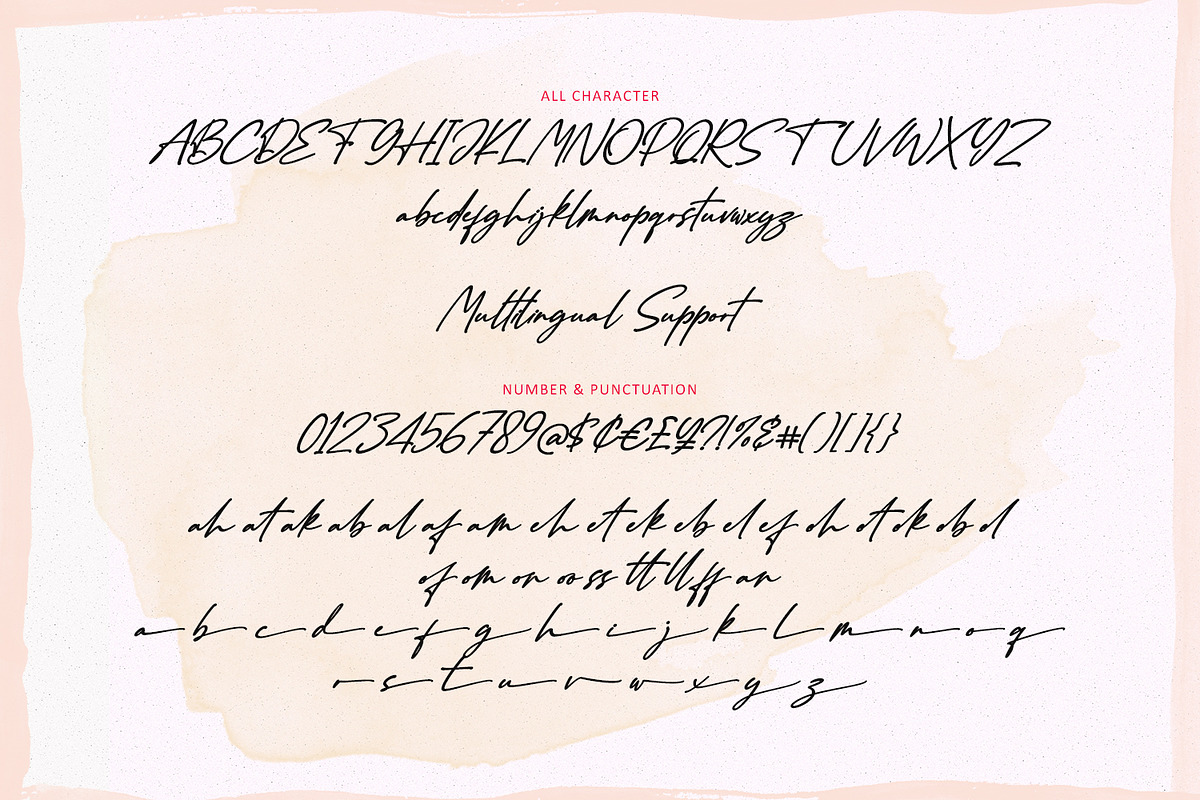 ALL CHARACTER
ABCDEFGHIJKLMNOPQRSTUVWXYZ
abcdefghijklmnopqrstuvwxyz
Multilingual Support
NUMBER & PUNCTUATION
0123456789@$¢€£¥?!%&#()[]{}
ah at ak ab al af am eh et ek eb el ef oh ot ok ob ol
of om on oo ss tt ll ff an
a b c d e f g h i j k l m n o q
r s t u v w x y z